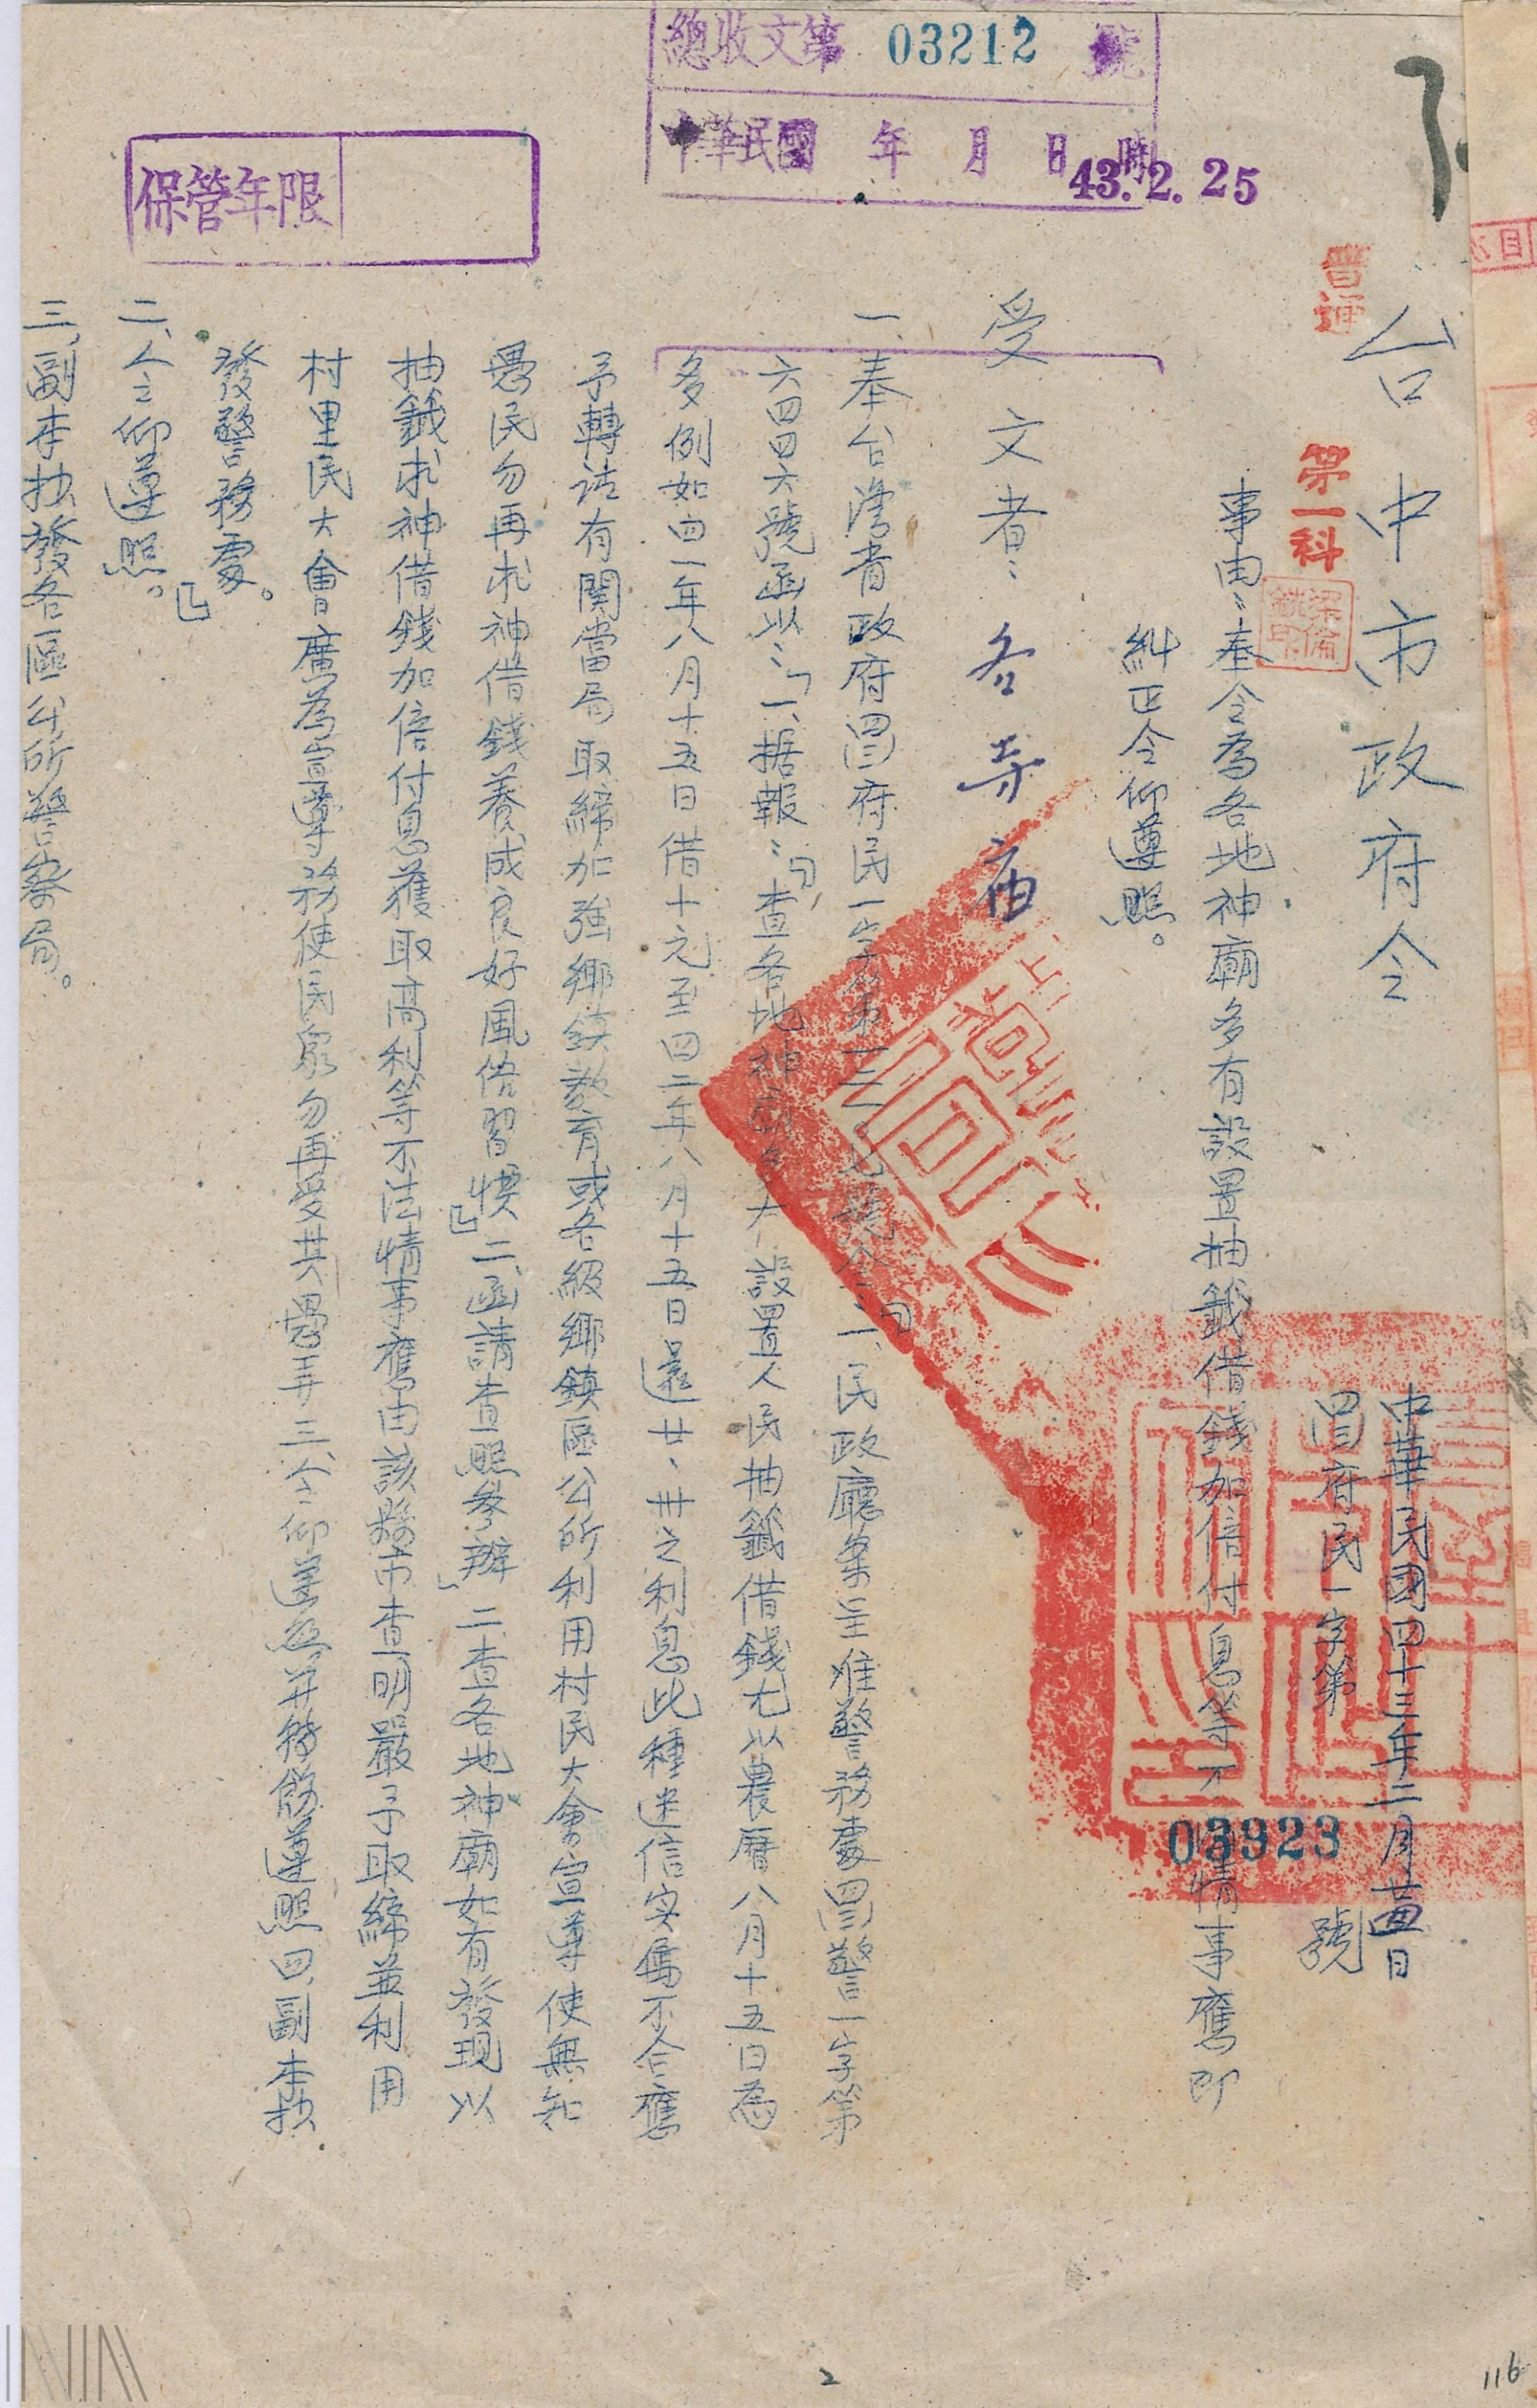 總收文第 03212 號
中華民國 年 月 日 時
43.2.25
保管年限
普通
第一科
台中市政府令
中華民國四十三年二月廿四日
府民一字第 03923 號
事由：奉令為各地神廟多有設置抽籤借錢加倍付息等不情事應即
糾正令仰遵照。
受文者：各寺庙
一、奉台灣省政府府民一字第號令：「一、民政廳案准警務處警一字第
六四四六號函以：「一、据報：「查各地神廟多有設置人民抽籤借錢尤以農曆八月十五日為
多例如四一年八月十五日借十元至四二年八月十五日還廿、卅之利息此種迷信实屬不合應
予轉請有関當局取締加強鄉鎮教育或各級鄉鎮區公所利用村民大會宣導使無知
愚民勿再求神借錢養成良好風俗習慣」二、函請查照參辦」二、查各地神廟如有發現以
抽籤求神借錢加倍付息獲取高利等不法情事應由該縣市查明嚴予取締並利用
村里民大會廣為宣導務使民衆勿再受其愚弄三、令仰遵照并轉飭遵照四、副本抄
發警務處。」
二、令仰遵照。
三、副本抄發各區公所警察局。
2
116